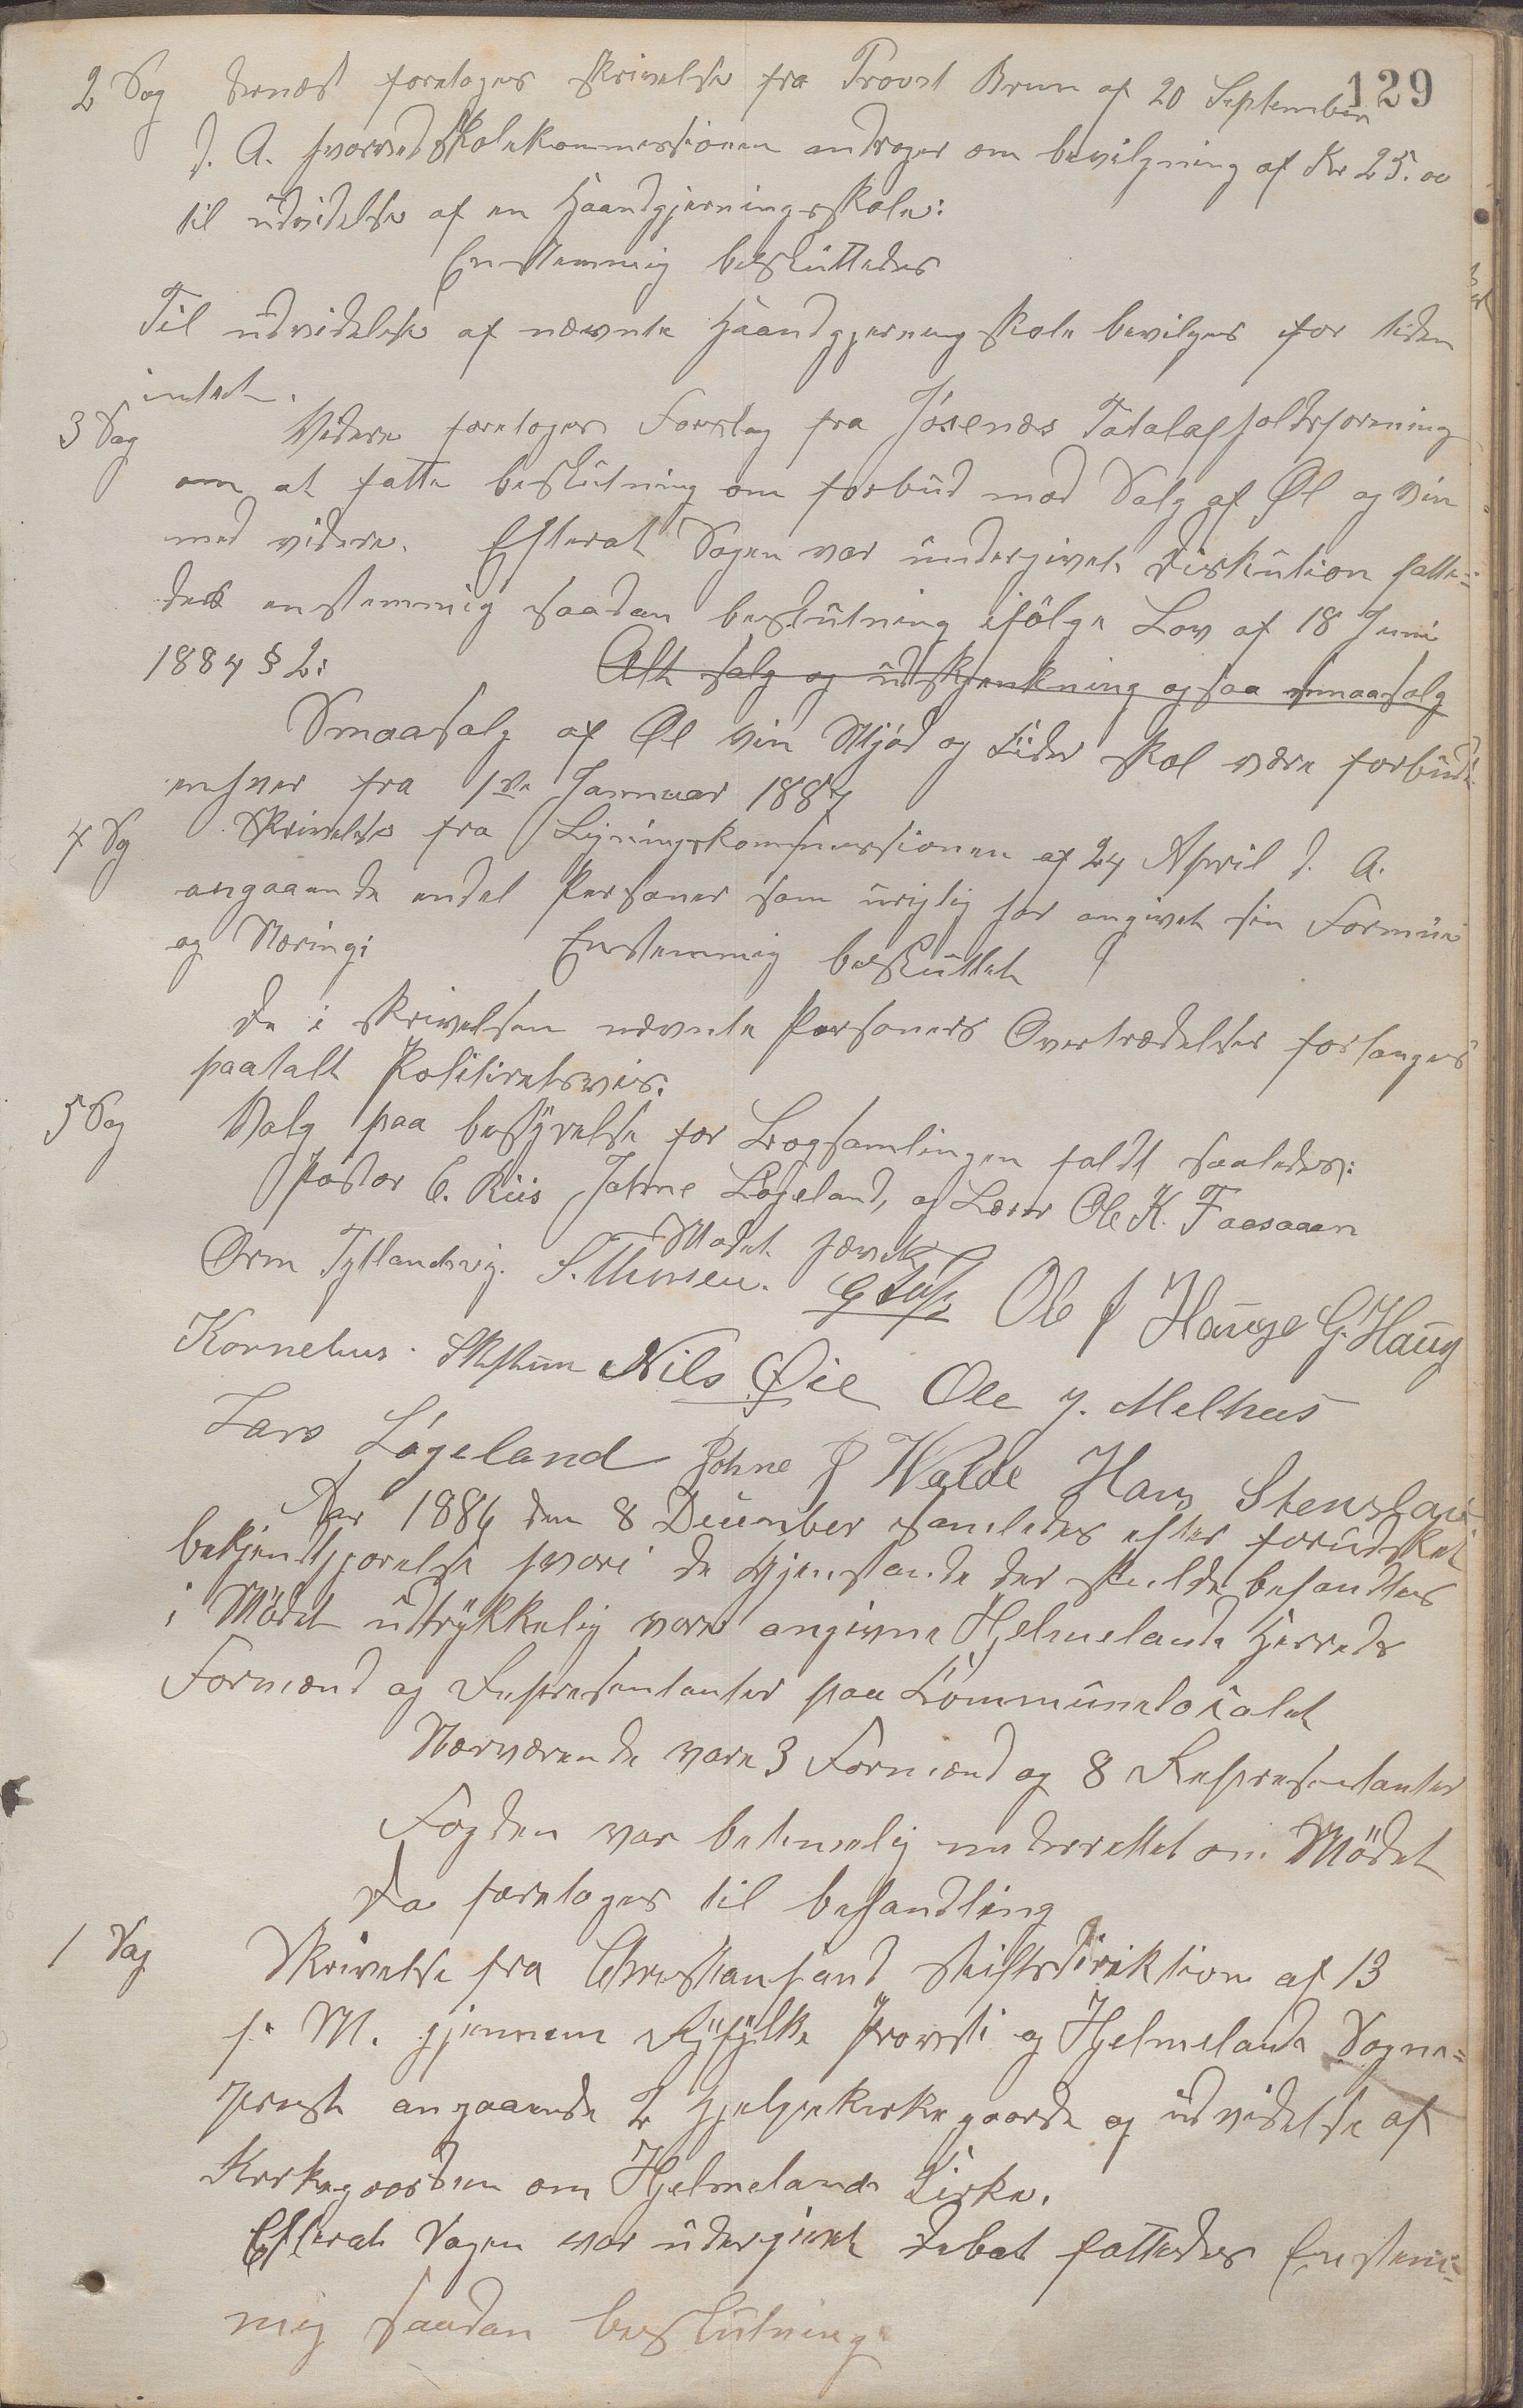 129
2 Sag dernæst foretoges Skrivelse fra Provst Brun af 20 September
d. A. hvorved Skolekommissionen andrager om bevilgning af Kr 25.00
til udvidelse af en Haandgjerningsskole:
Enstemmig besluttedes
Til udvidelse af nævnte Haandgjerningskole bevilges for tiden
intet.
3 Sag Videre foretoges Forslag fra Jøsenæs Totalafholdsforening
om at fatte beslutning om forbud mod Salg af Øl og Vin
med videre. Efterat Sagen var undergivet diskution fatte=
des enstemmig saadan beslutning ifølge Lov af 18 Juni
1884 § 2: Alt salg og udskjenkning ogsaa smaasalg
Smaasalg af Øl Vin Mjød og Sider skal være forbudt
enhver fra 1ste Januar 1887
4 Sag Skrivelse fra Ligningskommissionen af 24 April d. A.
angaaende endel Personer som urigtig har angivet sin Formue
og Næring; Enstemmig besluttet
De i Skrivelsen nævnte Personers Overtrædelser forlanges
paatalt Politiretsvis.
5 Sag Valg paa bestyrelse for Bogsamlingen faldt saaledes:
Pastor C. Riis Johne Løgeland, og Lærer Ole K. Faasaaen
Mødet hævet
Orm Tytlandsvig. S. Thorsen. Ole J Hauge G. Haug
Kornelius Nils Øie Ole J. Melhus
Lars Løgeland Johne J Walde Hans
Aar 1886 den 8 December samledes efter forudsket
bekjendtgjørelse hvori de Gjenstande der skulde behandles
i Mødet udtrykkelig vare angivne Hjelmelands Herreds
Formænd og Representanter paa Kommunelocalet
Nærværende vare 3 Formænd og 8 Representanter
Fogden var betimelig underrettet om Mødet
Da foretoges til behandling
1 Sag Skrivelse fra Christiansand Stiftsdirektion af 13
f. M. gjennem Ryfylke Provsti og Hjelmelands Sogne=
prest angaaende 2 Hjelpekirkegaarde og udvidelse af
Kirkegaarden om Hjelmelands Kirke.
Efterat Sagen var undergivet debat fattedes Enstem=
mig saadan beslutning